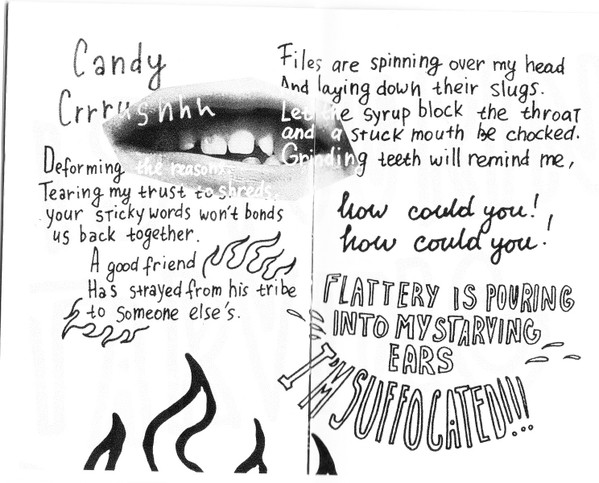 Candy
Crrrushhh
Deforming the reasons.
Tearing my trust to shreds.
your sticky words won't bonds
us back together.
A good friend
Has strayed from his tribe
to someone else's.
Files are spinning over my head
And laying down their slugs.
Let the syrup block the throat
and a stuck mouth be chocked.
Grinding teeth will remind me,
how could you!,
how could you!
FLATTERY IS POURING
INTO MY STARVING
EARS
I'M SUFFOCATED!!!